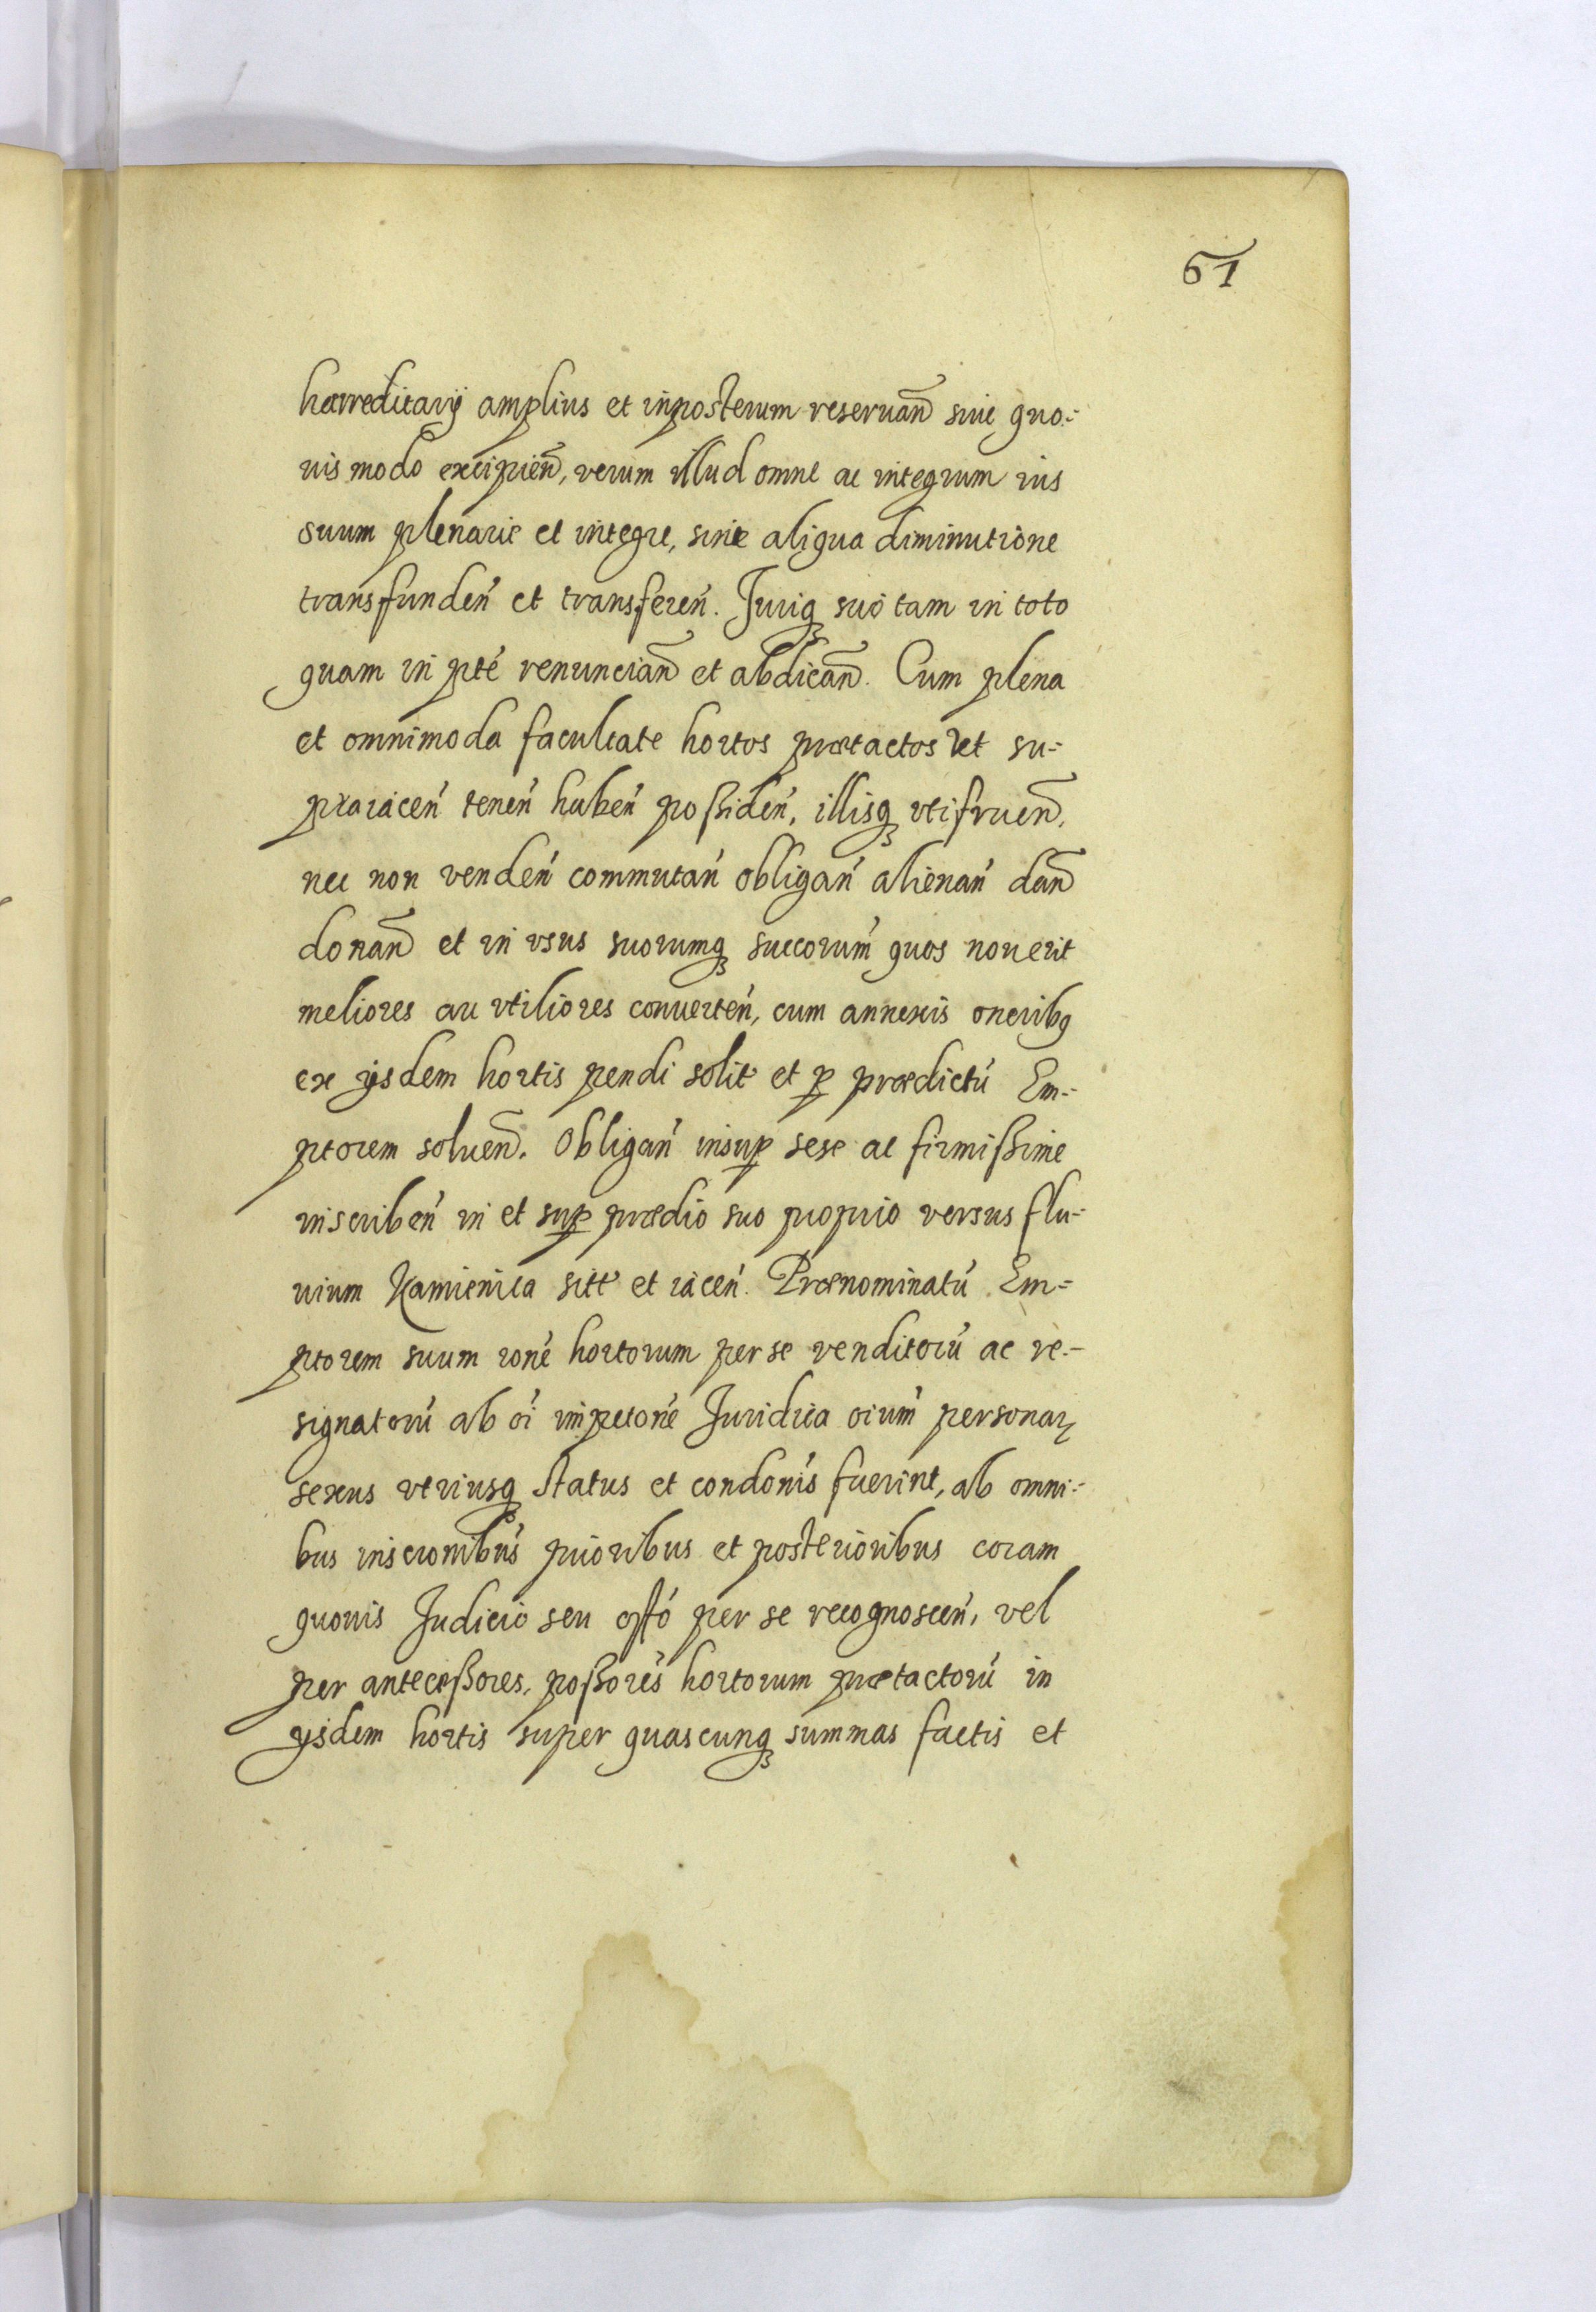 61
hærreditarij amplius et inposterum reseruan̄ siue quo-
uis modo excipien̄, verum illud omne ac integrum ius
suum plenarie et integre, sine aliqua diminutione
transfunden̄ et transferen̄. Juriq suo tam in toto
quam in pte renuncian̄ et abdican̄. Cum plena
et omnimoda facultate hortos prætactos et su-
praiacen̄ tenen̄ haben̄ poßiden̄, illisq vtifruen̄,
nec non venden̄ commutan̄ obligan̄ alienan̄ dan̄
donan̄ et in vsus suorumq succorum̄ quos nouerit
meliores ac vtiliores conuerten̄, cum annexis oneribꝰ
ex ijsdem hortis pendi solit et p prædictū Em-
ptorem soluen̄. Obligan̄ insup sese ac firmißime
inscriben̄ in et sup prædio suo proprio versus flu-
uium Kamienica sitt et iacen̄. Prænominatū Em-
ptorem suum rone hortorum per se venditorū ac re-
signatorū ab oi impetone Juridica oium̄ personaꝝ
sexus vtriusq status et condonis fuerint, ab omni-
bus inscronibus prioribus et posterioribus coram
quouis Judicio seu offo per se recognoscen̄, vel
per anteceßores, poßores hortorum prætactorū in
ijsdem hortis super quascunq summas factis et